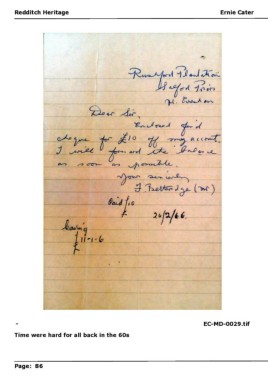 Redditch Heritage
Ernie Cater
Rushford Plantation
Salford Priors
Nr. Evesham
Dear Sir,
Enclosed find
cheque for £10 off my account,
I will forward the balance
as soon as possible.
Yours sincerely
F Bettridge (Mr)
Paid £10
£ 26/2/66.
leaving
£11-1-6
EC-MD-0029.tif
Time were hard for all back in the 60s
Page: 86